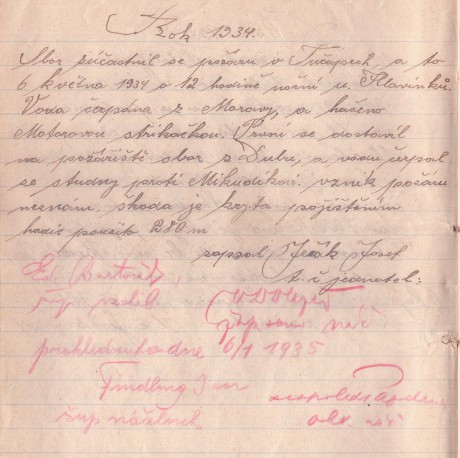 Rok 1934.
Sbor súčastnil se požáru v Tučapech, a to
6 května 1934 o 12 hodině noční u. Hlavinků.
Voda čerpána z Moravy, a hašeno
Motorovou stříkačkou. První se dostavil
na požářiště sbor z Dubu, a vodu čerpal
se studny proti Mikudíkovi. vznik požáru
neznám. škoda je kryta pojištěním
hadic použito 280 m
zapsal Ježák Josef
t. č. jednatel:
žup. vzděl.
žup. náč
prohlédnuto dne 6/1 1935
Findling Jan
žup náčelník
okr. náč